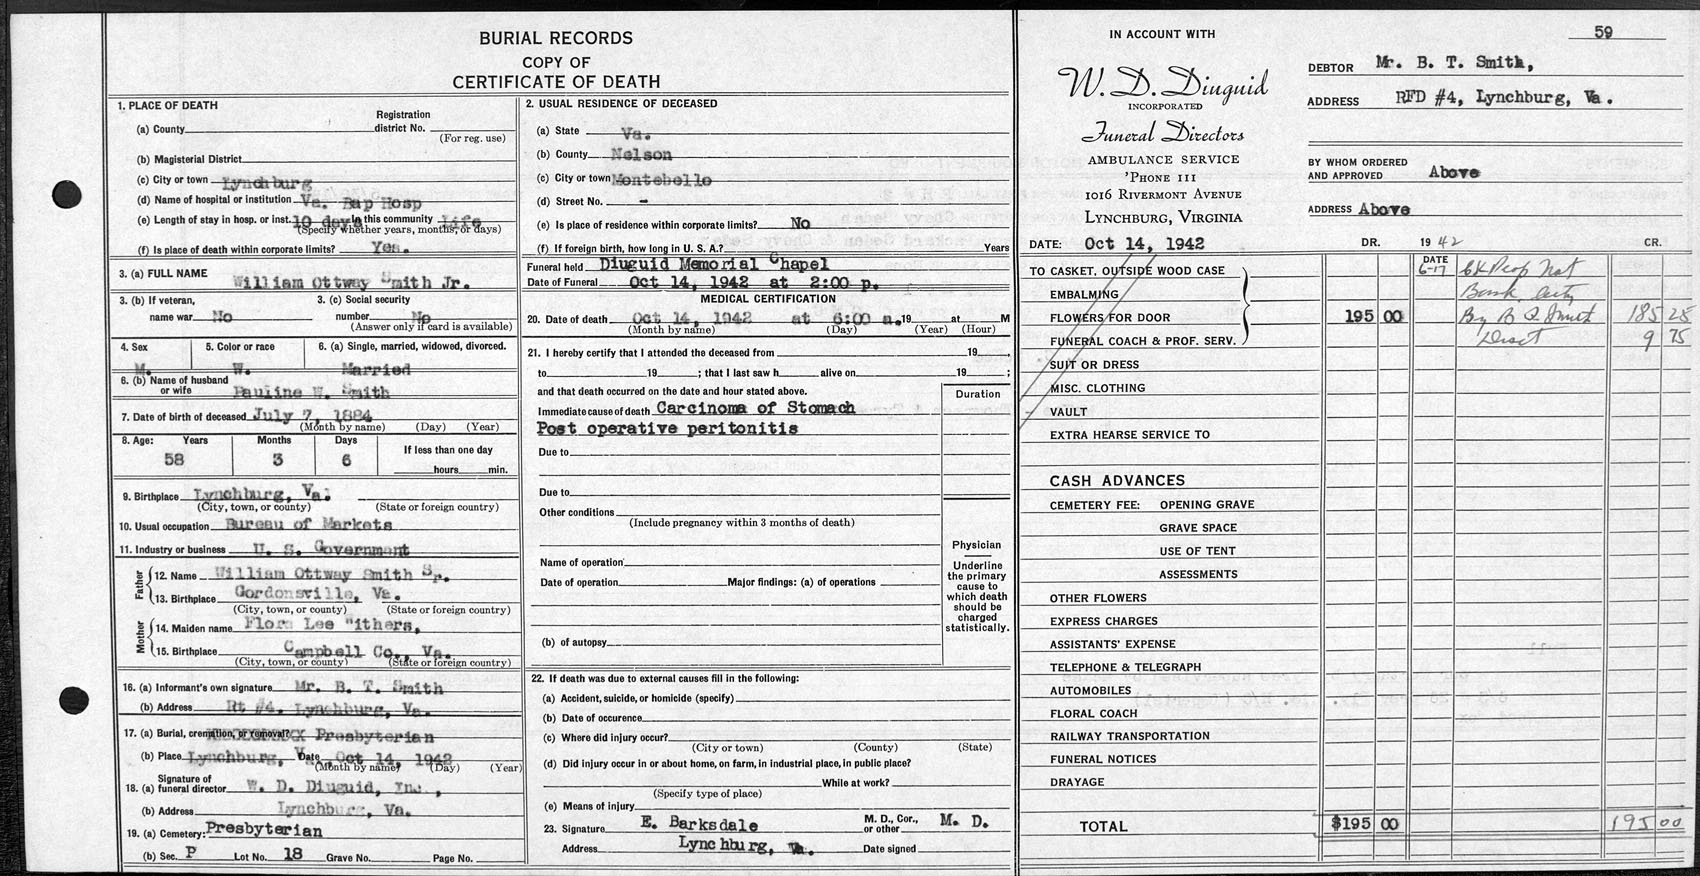 BURIAL RECORDS
COPY OF
CERTIFICATE OF DEATH
1. PLACE OF DEATH
Registration
(a) County district No.
(For reg. use)
(b) Magisterial District
(c) City or town Lynchburg
(d) Name of hospital or institution Va. Bap Hosp
(e) Length of stay in hosp. or inst. 10 days In this community Life
(Specify whether years, months, or days)
(f) Is place of death within corporate limits? Yes.
3. (a) FULL NAME
William Ottway Smith Jr.
3. (b) If veteran, 3. (c) Social security
name war No number No
(Answer only if card is available)
4. Sex 5. Color or race 6. (a) Single, married, widowed, divorced.
M. W. Married
6. (b) Name of husband
or wife Pauline W. Smith
7. Date of birth of deceased July 7, 1884
(Month by name) (Day) (Year)
8. Age: Years Months Days If less than one day
58 3 6 hours min.
9. Birthplace Lynchburg, Va.
(City, town, or county) (State or foreign country)
10. Usual occupation Bureau of Markets
11. Industry or business U. S. Government
Father
12. Name William Ottway Smith Sr.
13. Birthplace Gordonsville, Va.
(City, town, or county) (State or foreign country)
Mother
14. Maiden name Flora Lee "ithers,
15. Birthplace Campbell Co., Va.
(City, town, or county) (State or foreign country)
16. (a) Informant's own signature Mr. B. T. Smith
(b) Address Rt #4. Lynchburg, Va.
17. (a) Burial, cremation, or removal? Presbyterian
(b) Place Lynchburg, Va Date Oct 14, 1942
(Month by name) (Day) (Year)
Signature of
18. (a) funeral director W. D. Diuguid, Inc.,
(b) Address Lynchburg, Va.
19. (a) Cemetery: Presbyterian
(b) Sec. P Lot No. 18 Grave No. Page No.
2. USUAL RESIDENCE OF DECEASED
(a) State Va.
(b) County Nelson
(c) City or town Montebello
(d) Street No. -
(e) Is place of residence within corporate limits? No
(f) If foreign birth, how long in U. S. A.? Years
Funeral held Diuguid Memorial Chapel
Date of Funeral Oct 14, 1942 at 2:00 p.
MEDICAL CERTIFICATION
20. Date of death Oct 14, 1942 at 6:00 a. 19 at M
(Month by name) (Day) (Year) (Hour)
21. I hereby certify that I attended the deceased from 19 ,
to 19 ; that I last saw h alive on 19 ;
and that death occurred on the date and hour stated above.
Duration
Immediate cause of death Carcinoma of Stomach
Post operative peritonitis
Due to
Due to
Other conditions
(Include pregnancy within 3 months of death)
Name of operation
Date of operation Major findings: (a) of operations
(b) of autopsy
Physician
Underline
the primary
cause to
which death
should be
charged
statistically.
22. If death was due to external causes fill in the following:
(a) Accident, suicide, or homicide (specify)
(b) Date of occurence
(c) Where did injury occur?
(City or town) (County) (State)
(d) Did injury occur in or about home, on farm, in industrial place, in public place?
While at work?
(Specify type of place)
(e) Means of injury
23. Signature E. Barksdale M. D., Cor., or other M. D.
Address Lynchburg, Va. Date signed
59
IN ACCOUNT WITH
W. D. Diuguid
INCORPORATED
Funeral Directors
AMBULANCE SERVICE
'PHONE 111
1016 RIVERMONT AVENUE
LYNCHBURG, VIRGINIA
DEBTOR Mr. B. T. Smith,
ADDRESS RFD #4, Lynchburg, Va.
BY WHOM ORDERED
AND APPROVED Above
ADDRESS Above
DATE: Oct 14, 1942 DR. 19 42 CR.
DATE
TO CASKET, OUTSIDE WOOD CASE 6-17 Ck Peop Nat
EMBALMING Bank City
FLOWERS FOR DOOR 195 00 By B T Smith 185 25
FUNERAL COACH & PROF. SERV. Disct 9 75
SUIT OR DRESS
MISC. CLOTHING
VAULT
EXTRA HEARSE SERVICE TO
CASH ADVANCES
CEMETERY FEE: OPENING GRAVE
GRAVE SPACE
USE OF TENT
ASSESSMENTS
OTHER FLOWERS
EXPRESS CHARGES
ASSISTANTS' EXPENSE
TELEPHONE & TELEGRAPH
AUTOMOBILES
FLORAL COACH
RAILWAY TRANSPORTATION
FUNERAL NOTICES
DRAYAGE
TOTAL $195 00 195 00